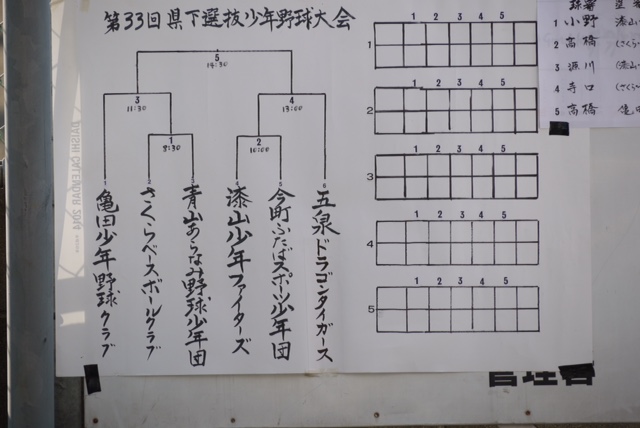 第33回県下選抜少年野球大会
5
14:30
3
11:30
4
13:00
1
8:30
2
10:00
亀田少年野球クラブ
さくらベースボールクラブ
青山あらなみ野球少年団
漆山少年ファイターズ
今町ふたばスポーツ少年団
五泉ドラゴンタイガース
1 2 3 4 5
1
1 2 3 4 5
2
1 2 3 4 5
3
1 2 3 4 5
4
1 2 3 4 5
5
球審
1 小野
2 高橋 (さくら
3 源川
4 寺口 (さくら
5 高橋
DAISHI CALENDAR 2014
管理者